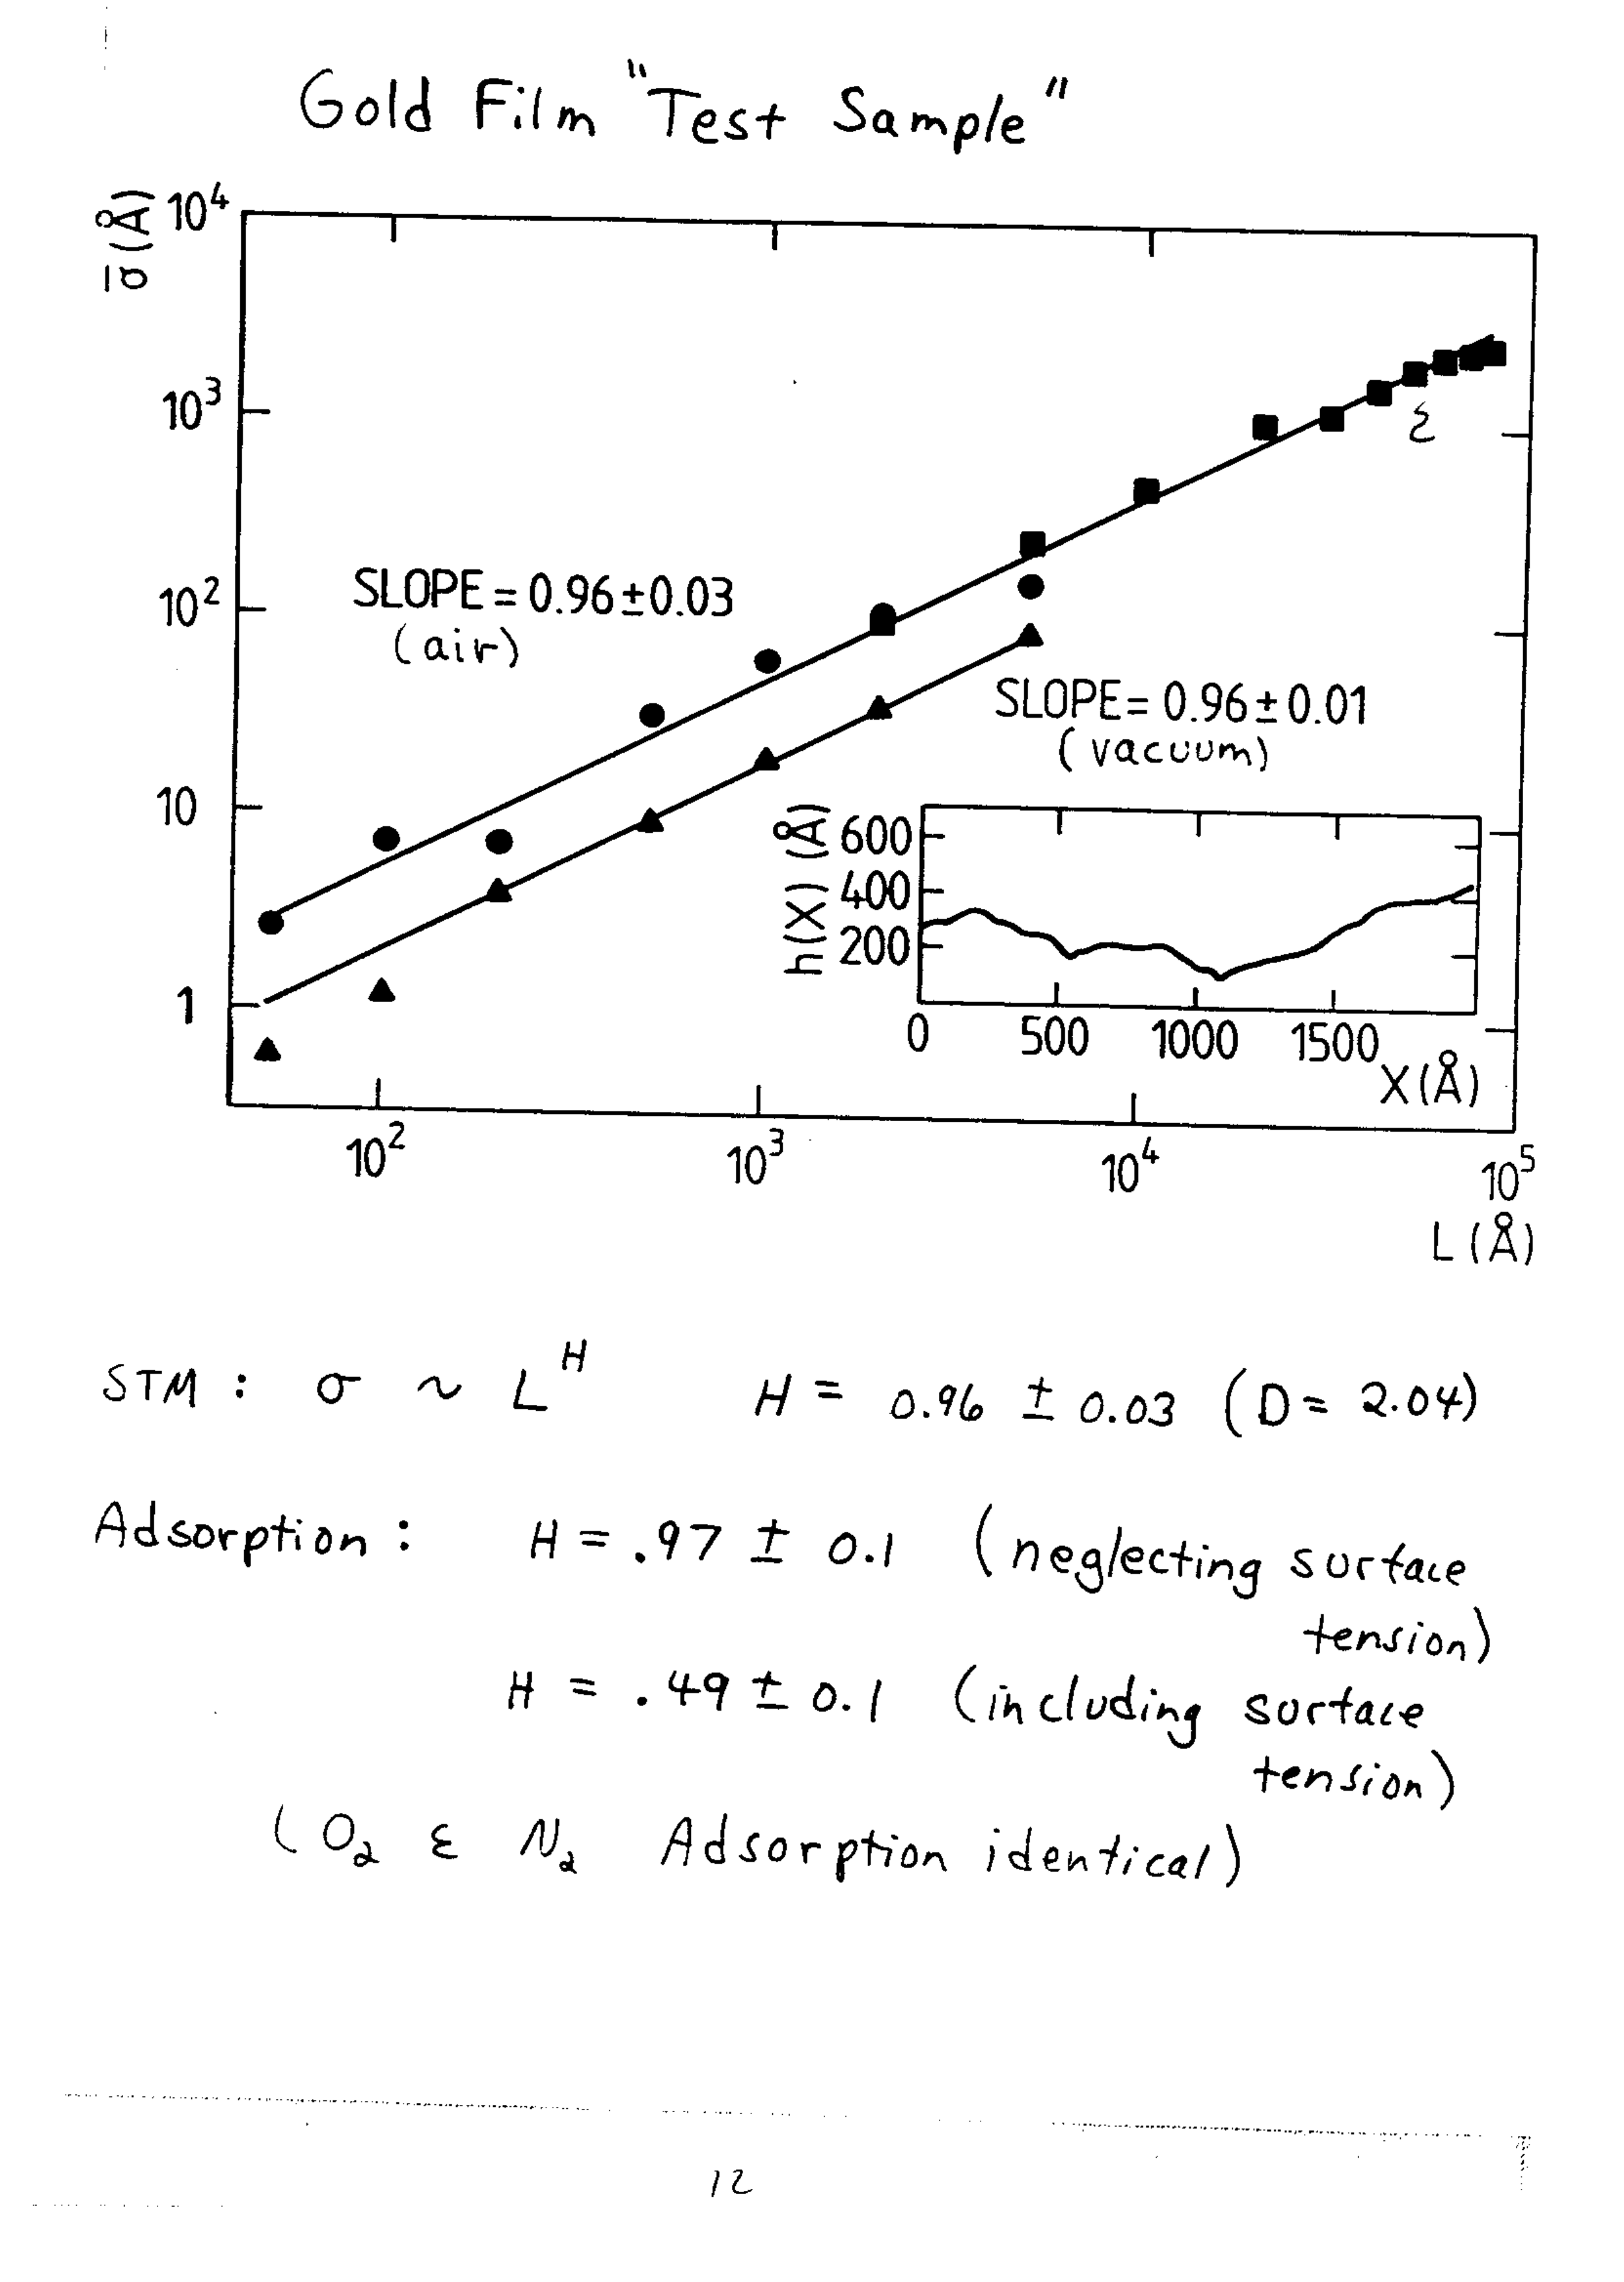 Gold Film "Test Sample"
σ̄(Å)
10⁴
10³
10²
10
1
SLOPE = 0.96±0.03
(air)
SLOPE = 0.96±0.01
(vacuum)
h(X) (Å)
600
400
200
0 500 1000 1500
X(Å)
10² 10³ 10⁴ 10⁵
L(Å)
STM : σ ~ L^H H = 0.96 ± 0.03 (D = 2.04)
Adsorption : H = .97 ± 0.1 (neglecting surface
tension)
H = .49 ± 0.1 (including surface
tension)
(O₂ & N₂ Adsorption identical)
12